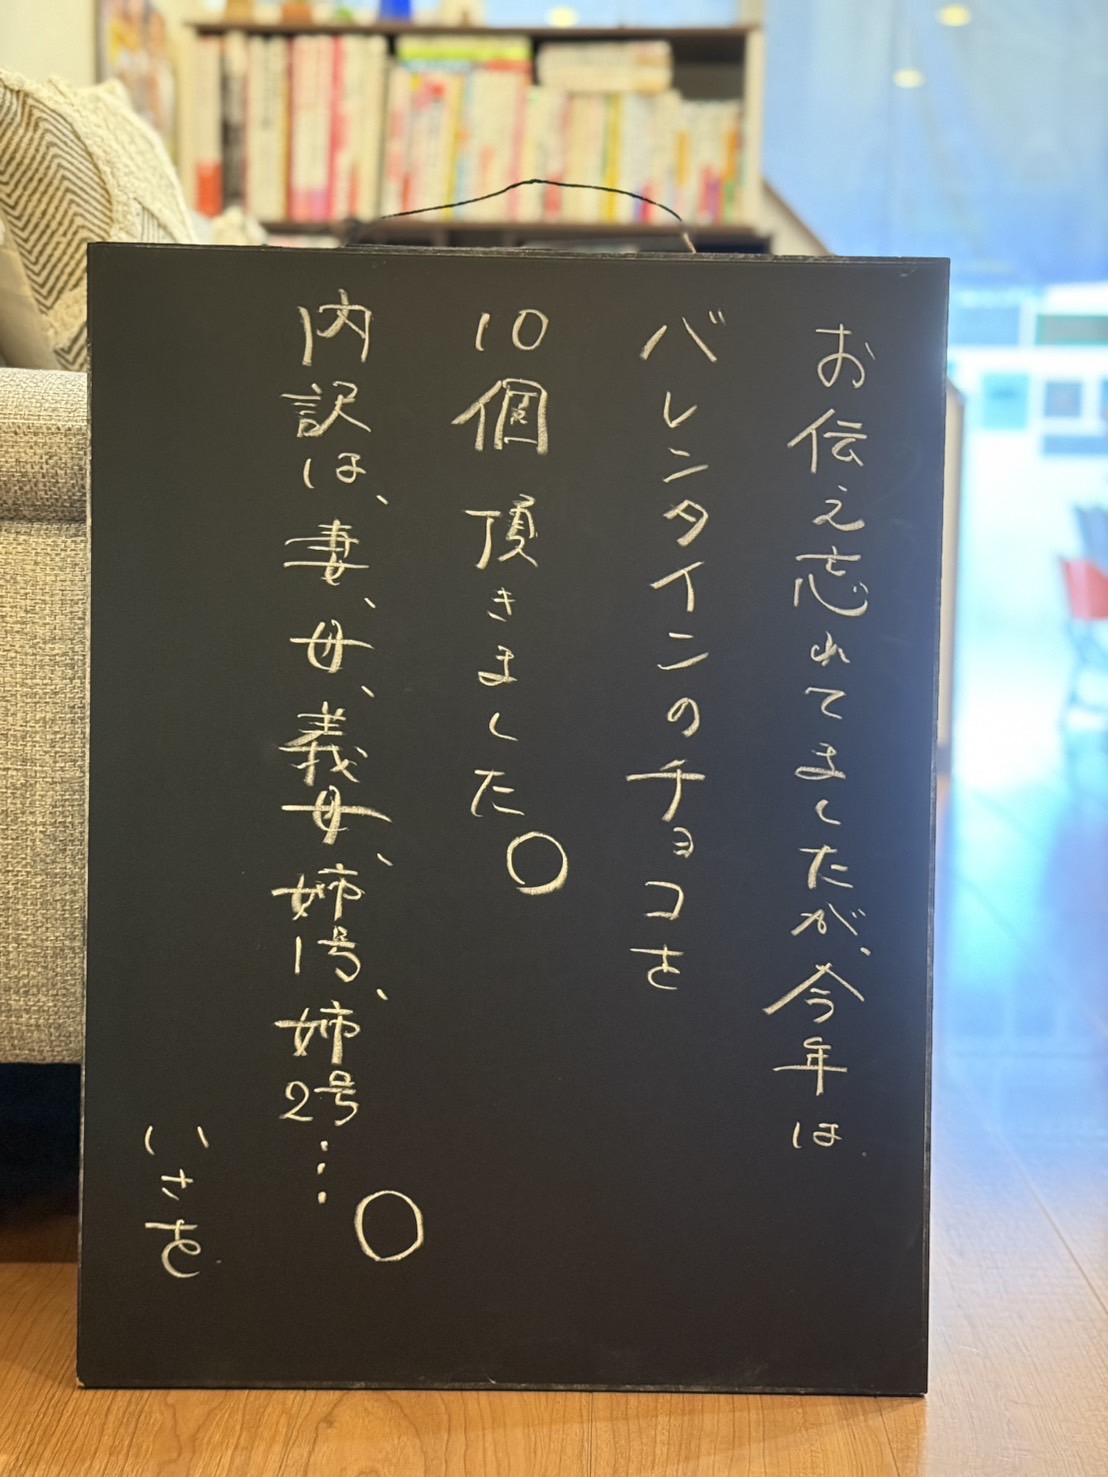 お伝え忘れてましたが、今年は
バレンタインのチョコを
10個頂きました。
内訳は、妻、母、義母、姉1号、姉2号…。
いさを